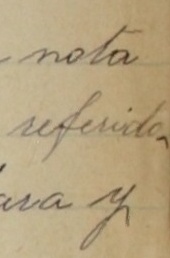 nota
referida,
ara y